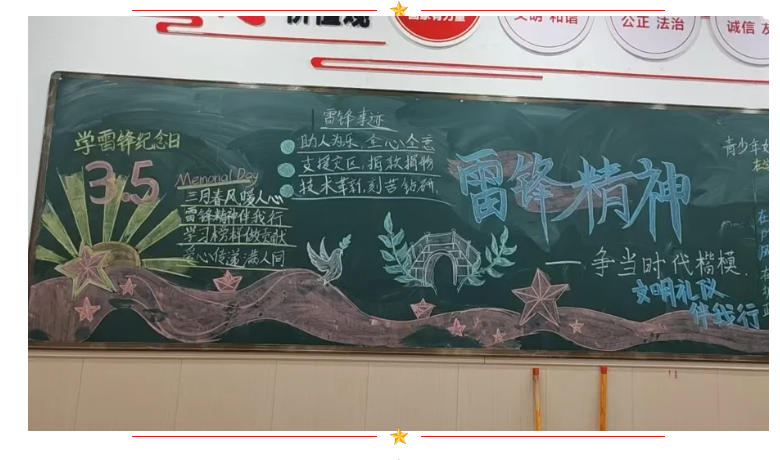 价值观
国家有力量
文明 和谐
公正 法治
诚信 友
学雷锋纪念日
3.5
Memorial Day
三月春风暖人心
雷锋精神伴我行
学习榜样做贡献
爱心传递满人间
雷锋事迹
助人为乐,全心全意
支援灾区,捐款捐物
技术革新,刻苦钻研.
雷锋精神
——争当时代楷模.
文明礼仪
伴我行
青少年